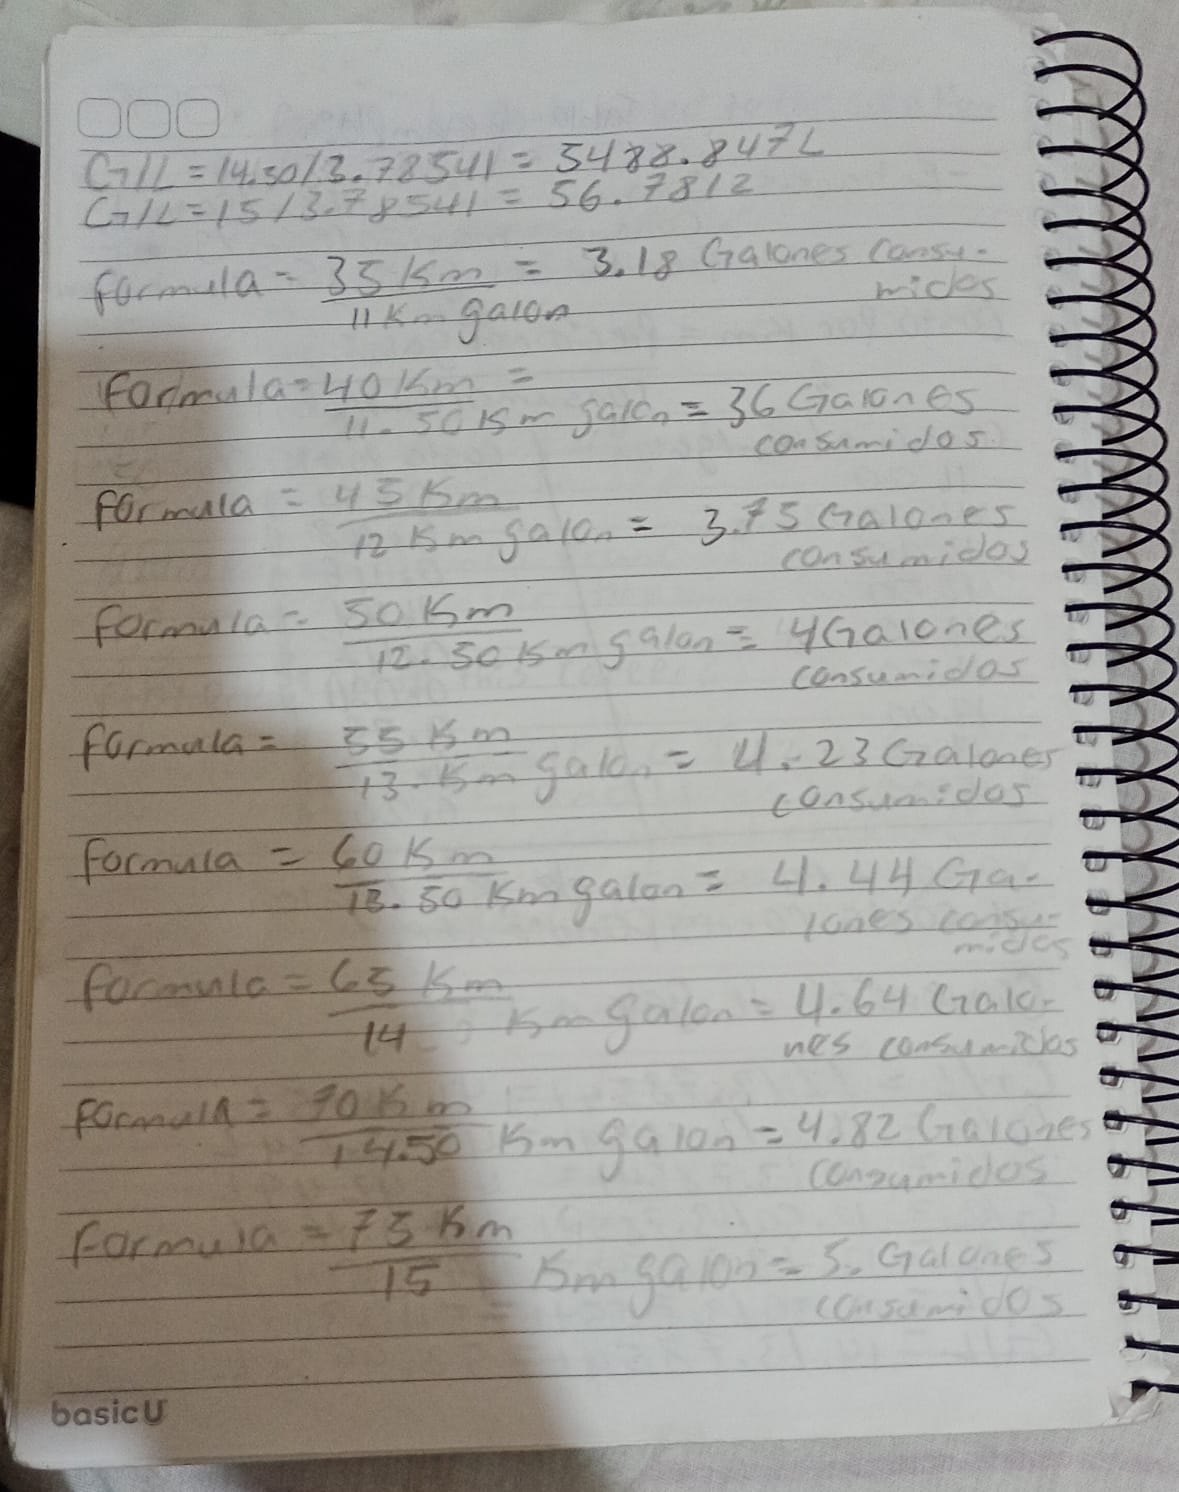 G/L = 14.50/3.78541 = 5488.847L
G/L = 15/3.78541 = 56.7812
formula = 35 Km = 3.18 Galones consu-
11 Km galon midos
Formula = 40 Km =
11.50 Km galon = 36 Galones
consumidos.
formula = 45 Km
12 Km galon = 3.75 Galones
consumidos
formula = 50 Km
12.50 Km galon = 4 Galones
consumidos
formula = 55 Km
13. Km galon = 4.23 Galones
consumidos
formula = 60 Km
13.50 Km galon = 4.44 Ga-
lones consu-
midos
formula = 65 Km
14 Km galon = 4.64 Galo-
nes consumidos
formula = 70 Km
14.50 Km galon = 4.82 Galones
consumidos
formula = 75 Km
15 Km galon = 5. Galones
consumidos
basicU